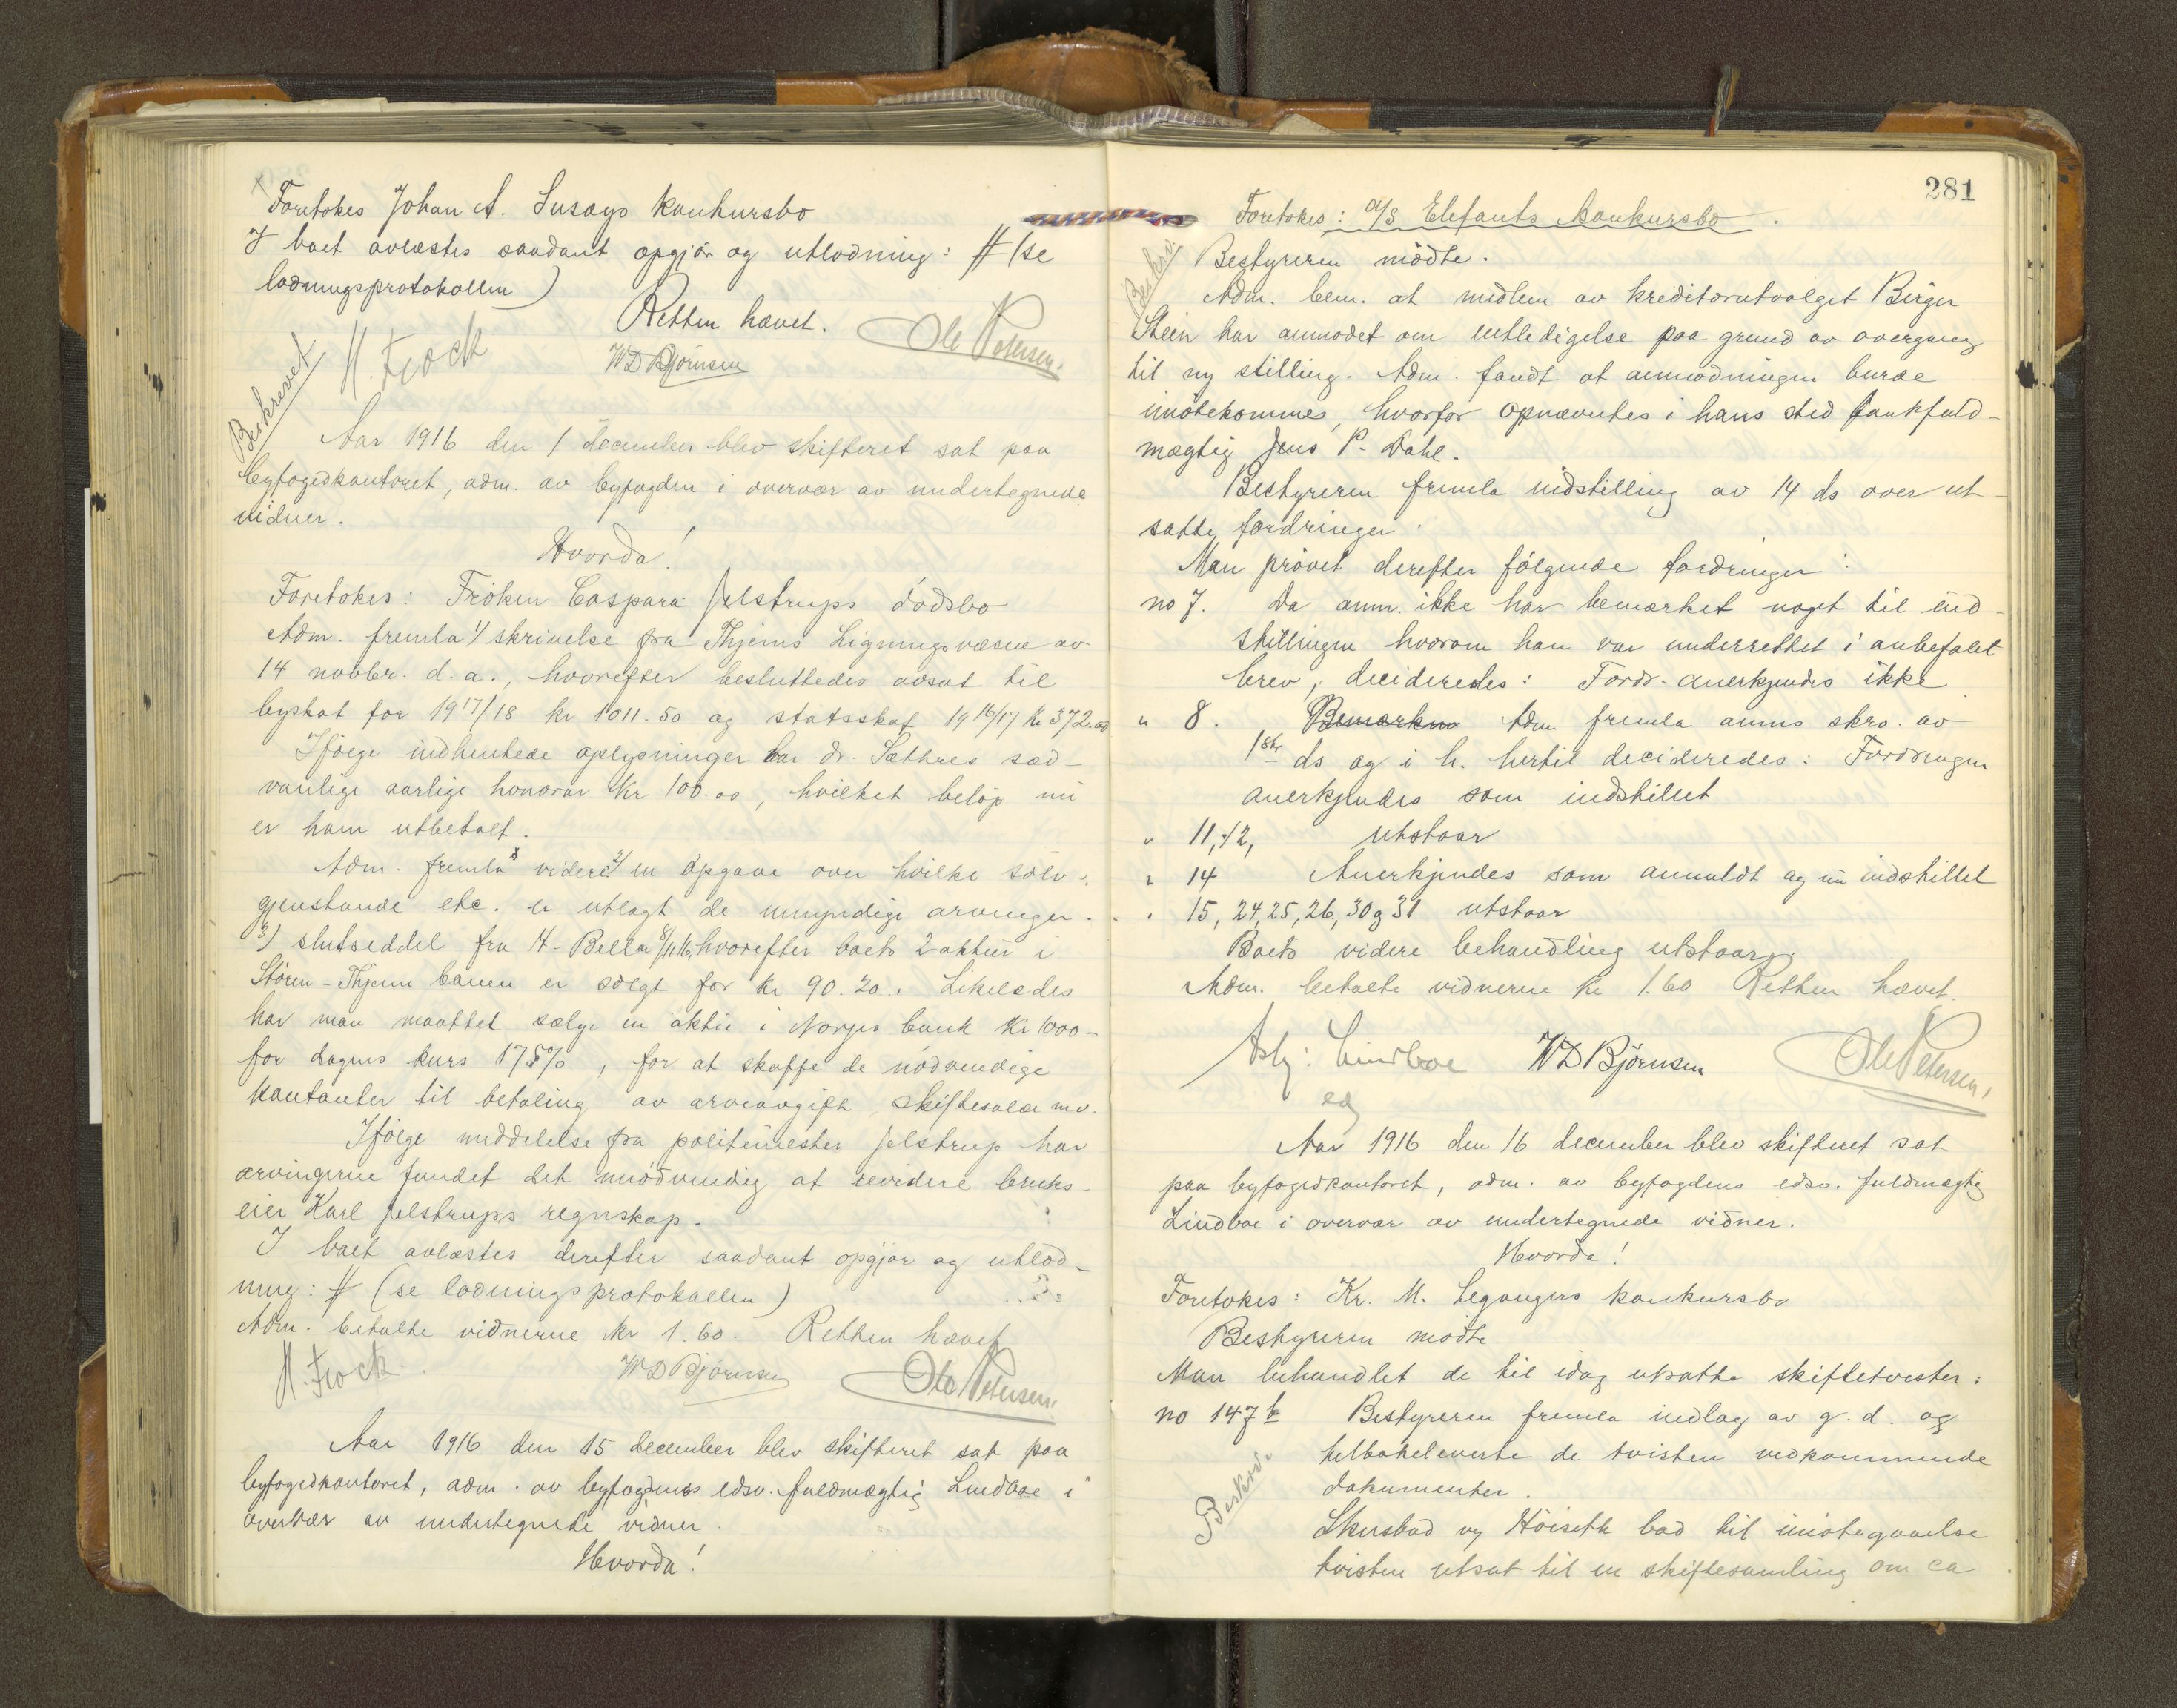 Foretokes Johan A. Susags konkursbo
I boet avlæstes saadant opgjør og utlodning: # (se
lodningsprotokollen)
Retten hævet.
H. Fock WD Bjørnsen Ole Petersen.
Beskrevet
Aar 1916 den 1 december blev skifteret sat paa
byfogedkontoret, adm. av byfogden i overvær av undertegnede
vidner.
Hvorda!
Foretokes: Frøken Caspara Jelstrups dødsbo
Adm. fremla 1/ skrivelse fra Thjems Ligningsvæsen av
14 novbr. d.a., hvorefter besluttedes avsat til
byskat for 1917/18 kr 1011.50 og statsskat 1916/17 kr 372.00
Ifølge indhentede oplysninger har dr. Sæthres sæd-
vanlige aarlige honorar kr 100.00, hvilket beløp nu
er ham utbetalt.
Adm. fremla videre 2/ en opgave over hvilke sølv-
gjenstande etc. er utlagt de umyndige arvinger.
3) slutseddel fra H. Bella 8/11 16, hvorefter boets 2 aktier i
Støren-Thjem banen er solgt for kr 90.20. Likeledes
har man maattet sælge en aktie i Norges bank kr 1000-
for dagens kurs 175%, for at skaffe de nødvendige
kontanter til betaling av arveavgift skiftesalær mv.
Ifølge meddelelse fra politimester Jelstrup har
arvingerne fundet det unødvendig at revidere bruks-
eier Karl Jelstrups regnskap.
I boet avlæstes derefter saadant opgjør og utlod-
ning: # (se lodningsprotokollen)
Adm. betalte vidnerne kr 1.60. Retten hævet
H. Fock WD Bjørnsen Ole Petersen
Aar 1916 den 15 december blev skifteret sat paa
byfogedkontoret, adm. av byfogdens edsv. fuldmægtig Lindboe i
overvær av undertegnede vidner.
Hvorda!
281
Foretokes: A/S Elefants konkursbo.
Beskrev.
Bestyreren mødte.
Adm. bem. at medlem av kreditorutvalget Birger
Stein har anmodet om entledigelse paa grund av overgang
til ny stilling. Adm. fandt at anmodningen burde
imøtekommes, hvorfor opnævntes i hans sted bankfuld-
mægtig Jens P. Dahl.
Bestyreren fremla indstilling av 14 ds over ut-
satte fordringer.
Man prøvet derefter følgende fordringer:
no 7. Da anm. ikke har bemærket noget til ind-
stillingen hvorom han var underrettet i anbefalet
brev, decideredes: Fordr. anerkjendes ikke
" 8. Bemærkn Adm fremla anms skrv. av
1ste ds og i h. hertil decideredes: Fordringen
anerkjendes som indstillet
" 11, 12, utstaar
" 14 Anerkjendes som anmeldt og nu indstillet
" 15, 24, 25, 26, 30 og 31 utstaar
Boets videre behandling utstaar.
Adm. betalte vidnerne kr 1.60 Retten hævet.
Asbj: Lindboe WD Bjørnsen Ole Petersen.
ed
Aar 1916 den 16 december blev skifteret sat
paa byfogedkontoret, adm. av byfogdens edsv. fuldmægtig
Lindboe i overvær av undertegnede vidner.
Hvorda!
Foretokes: Kr. M. Leganger konkursbo
Bestyreren mødte
Man behandlet de til idag utsatte skiftetvister:
no 147 b Bestyreren fremla indlæg av g.d. og
tilbakeleverte de tvisten vedkommende
dokumenter.
Beskrev.
Skursbad og Høiseth bad til imøtegaaelse
tvisten utsat til en skiftesamling om ca